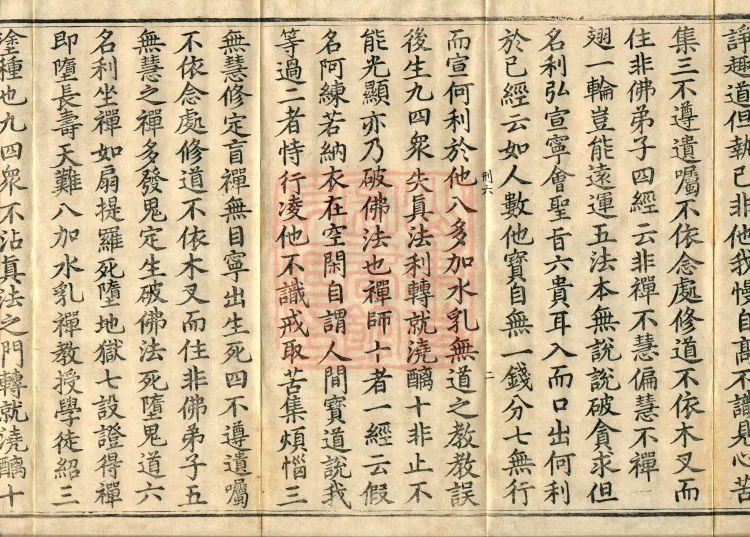 諍趣道但執己非他我慢自高不識見心苦
集三不遵遺囑不依念處修道不依木叉而
住非佛弟子四經云非禪不慧偏慧不禪一
翅一輪豈能遠運五法本無說說破貪求但
名利弘宣寧會聖旨六貴耳入而口出何利
於已經云如人數他寶自無一錢分七無行
刊六
二
而宣何利於他八多加水乳無道之教教誤
後生九四衆失真法利轉就澆醨十非止不
能光顯亦乃破佛法也禪師十者一經云假
名阿練若納衣在空閑自謂人間寶道說我
等過二者恃行凌他不識戒取苦集煩惱三
無慧修定盲禪無目寧出生死四不遵遺囑
不依念處修道不依木叉而住非佛弟子五
無慧之禪多發鬼定生破佛法死墮鬼道六
名利坐禪如扇提羅死墮地獄七設證得禪
即墮長壽天難八加水乳禪教授學徒紹三
塗種也九四衆不沾真法之門轉就澆醨十